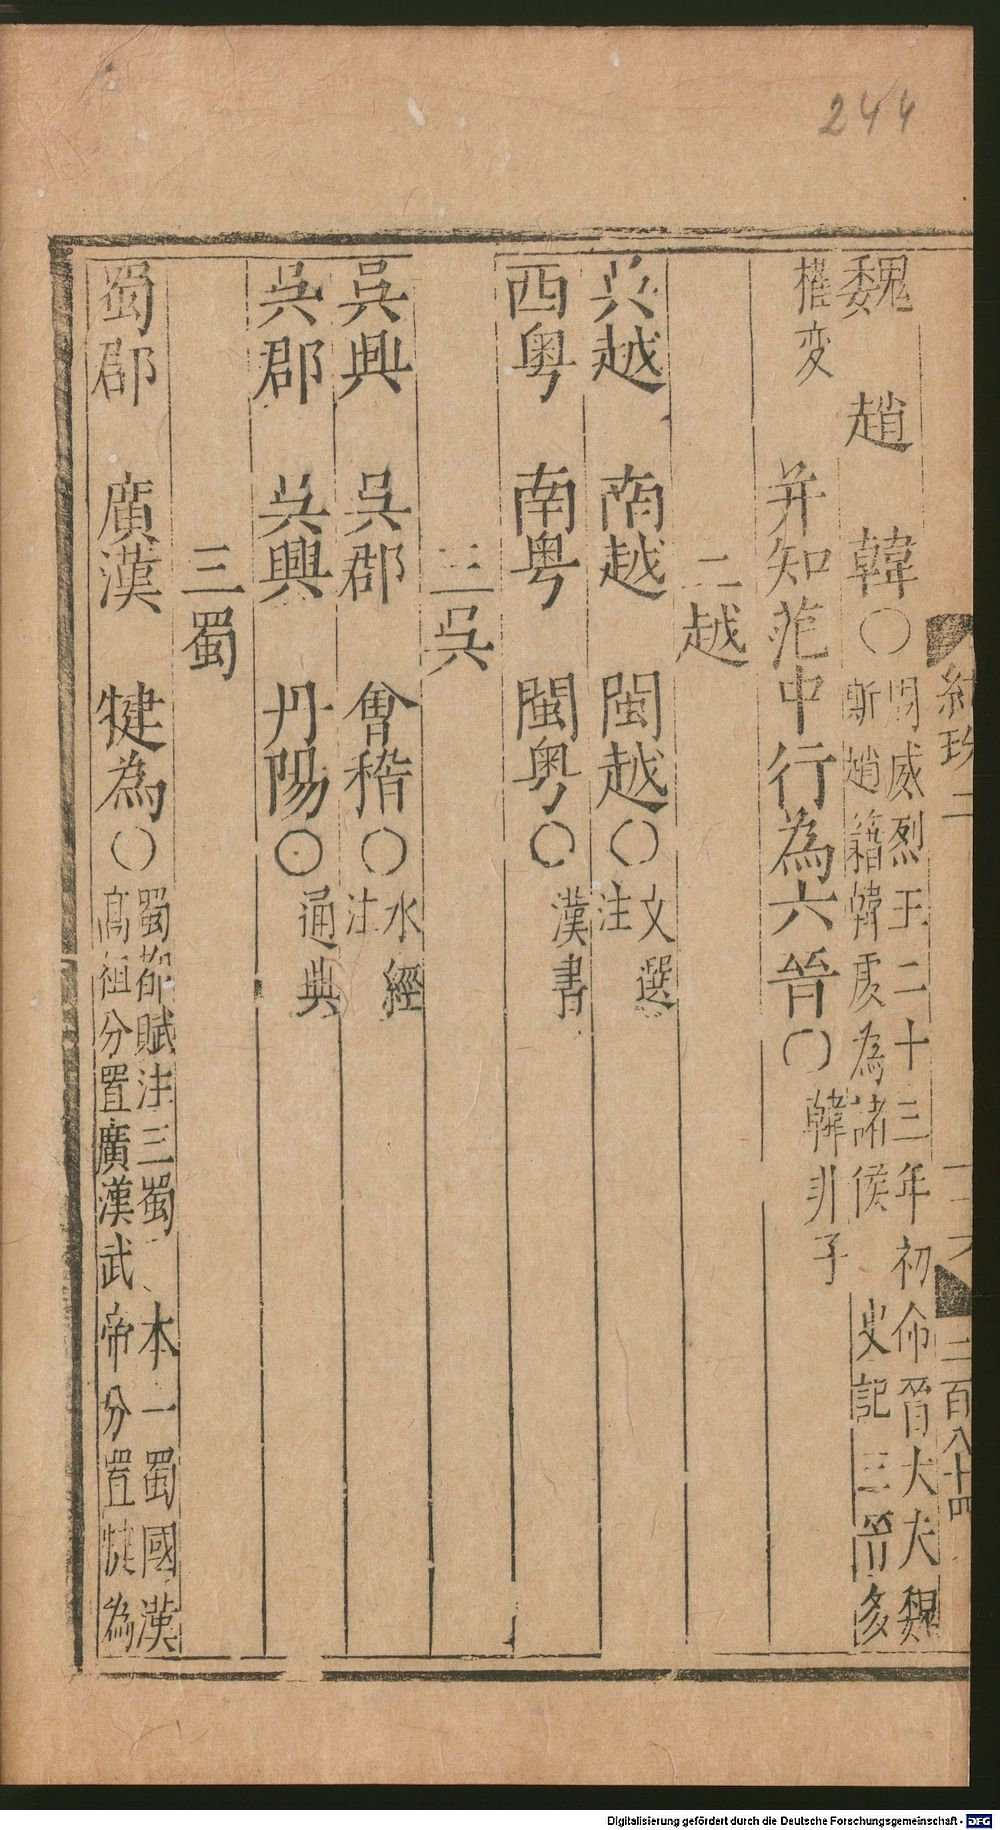 244
魏 趙 韓〇周威烈王二十三年初命晉大夫魏
斯趙籍韓虔為諸侯 史記三晉多
權变
并知范中行為六晉〇韓非子
二越
吳越 南越 閩越〇文選
注
西粤 南粤 閩粤〇漢書
三吳
吳興 吳郡 會稽〇水經
注
吳郡 吳興 丹陽〇通典
三蜀
蜀郡 廣漢 犍為〇蜀都賦注三蜀 本一蜀國漢
高祖分置廣漢武帝分置犍為
二百八十四
Digitalisierung gefördert durch die Deutsche Forschungsgemeinschaft - DFG